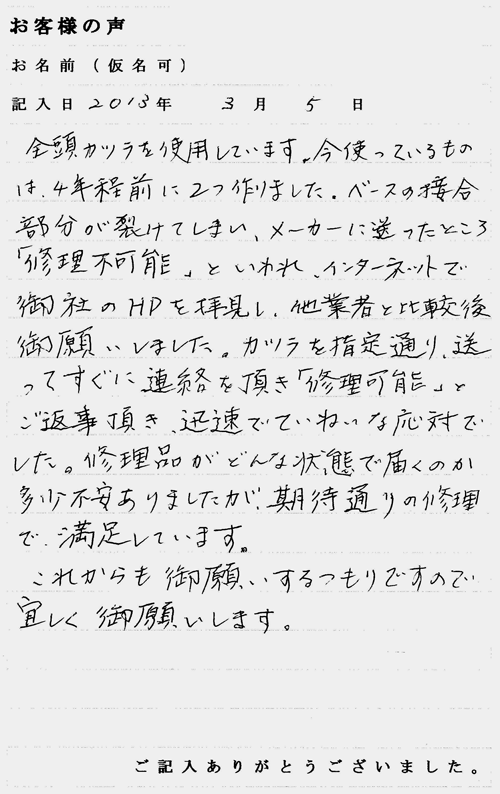 お客様の声
お名前（仮名可）
記入日 2013年 3月 5日
全頭カツラを使用しています。今使っているもの
は、4年程前に2つ作りました。ベースの接合
部分が裂けてしまい、メーカーに送ったところ
「修理不可能」といわれ、インターネットで
御社のHPを拝見し、他業者と比較後
御願いしました。カツラを指定通り、送
ってすぐに連絡を頂き「修理可能」と
ご返事頂き、迅速でていねいな応対で
した。修理品がどんな状態で届くのか
多少不安ありましたが、期待通りの修理
で、満足しています。
これからも御願いするつもりですので
宜しく御願いします。
ご記入ありがとうございました。